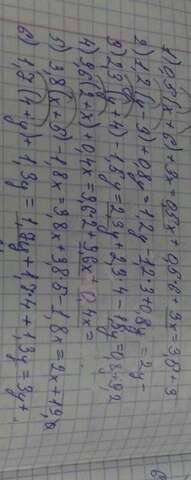 1) 0,5(x+6)+3x=0,5x+0,5·6+3x=3,5+3
2) 1,2(y-3)+0,8y=1,2y-1,2·3+0,8y=2y-
3) 2,3(y+4)-1,5y=2,3y+2,3·4-1,5y=0,8-9,2
4) 9,6(2+x)+0,4x=9,6·2+9,6x+0,4x=
5) 3,8(x+5)-1,8x=3,8x+3,8·5-1,8x=2x+19
6) 1,7(4+y)+1,3y=1,7y+1,7·4+1,3y=3y+